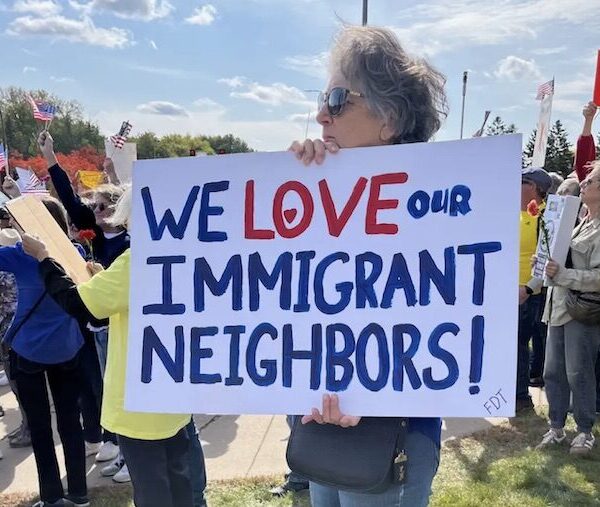 WE LOVE OUR
IMMIGRANT
NEIGHBORS!
FDT